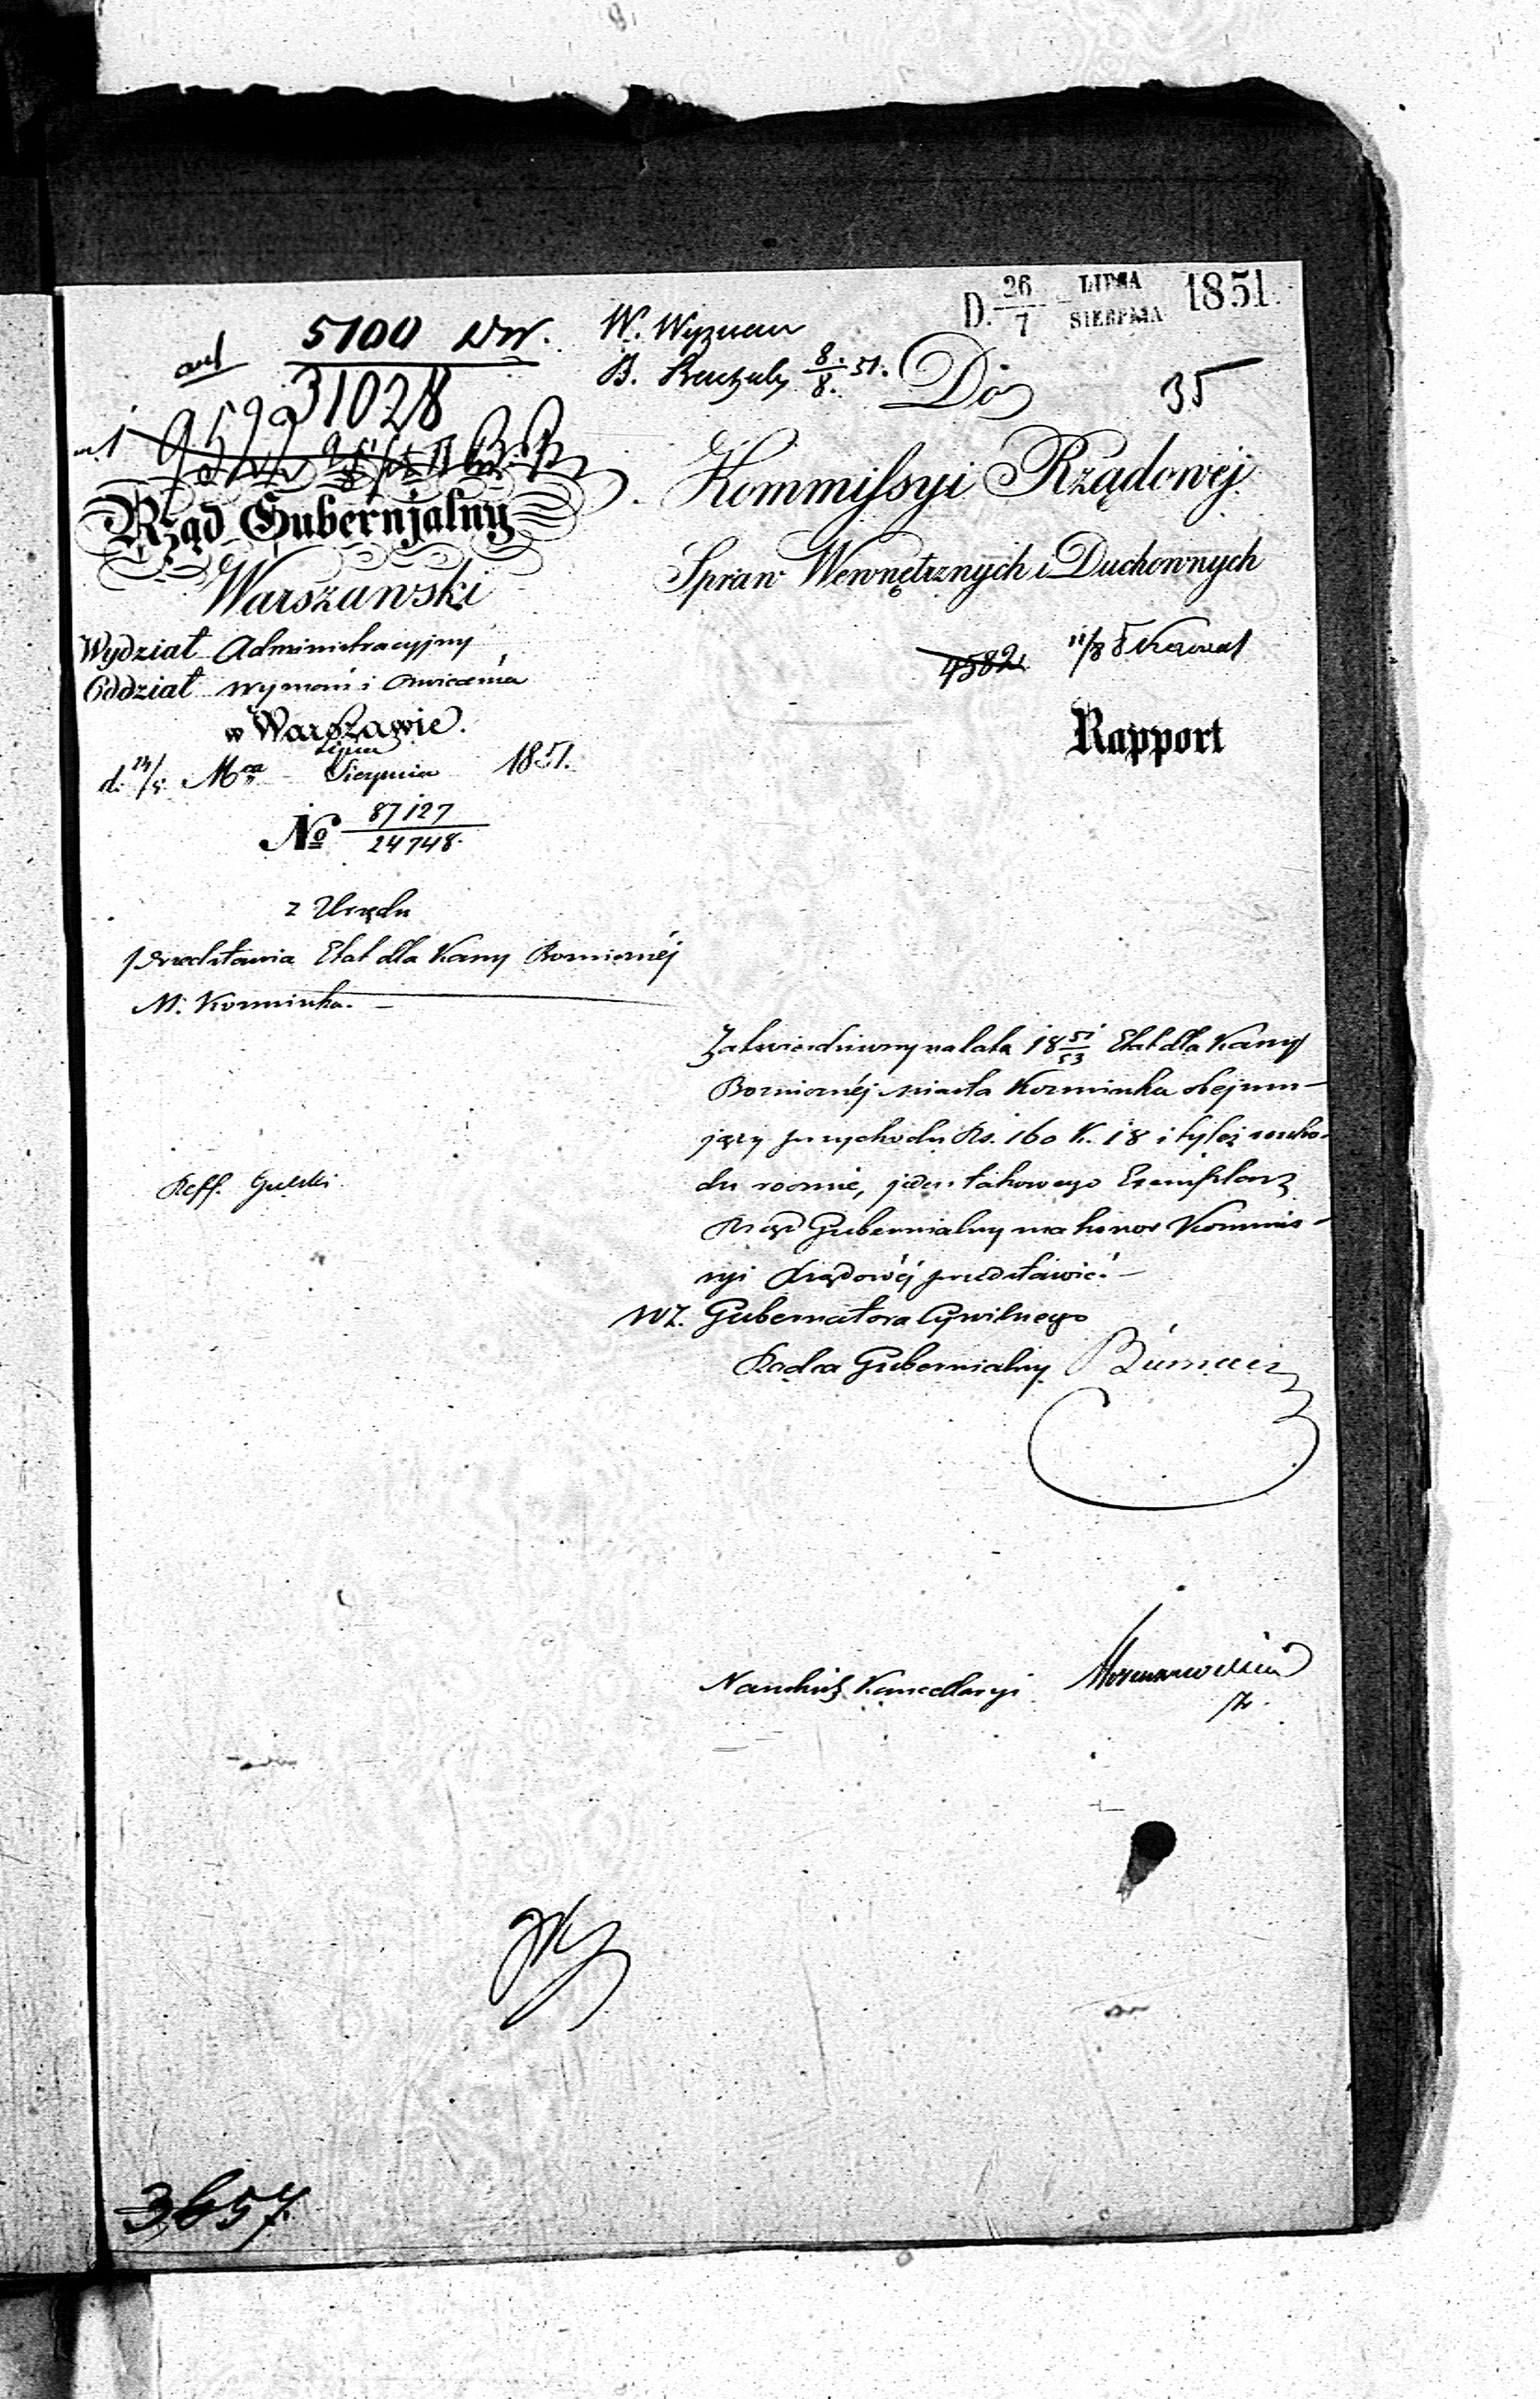 D. 26/7 LIPCA/SIERPNIA 1851.
5100
31028
W. Wyznań
B. 8/8. 51.
Do
35
Rząd Gubernjalny
Warszawski
Wydział Administracyjny
Oddział Wyznań i Oświecenia
w Warszawie.
d. 24/5 Mca Lipca/Sierpnia 1851.
No 87127/24748.
Kommissyi Rządowéj
Spraw Wewnętrznych i Duchownych
4582
11/8
Rapport
z Urzędu
przedstawia Etat dla Kassy Bożniczéj
M. Koźminka. —
Zatwierdzony na lata 18 51/53 Etat dla Kassy
Bożniczéj miasta Koźminka obejmu-
jący przychodu Rs. 160 K. 18 i tyleż rozcho-
du rocznie, jeden takowego Exemplarz
Rząd Gubernialny ma honor Kommis-
syi Rządowéj przedstawić. —
Reff. Gulski
wz. Gubernatora Cywilnego
Radca Gubernialny
Naczelnik Kancellaryi
3657